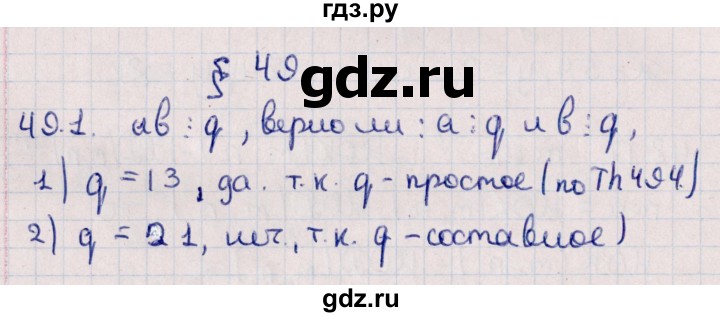 гдз.ру
§ 49
gdz.ru
49.1. ав⋮q, верно ли: а⋮q и в⋮q,
1) q = 13, да. т.к. q - простое (по Th 49.4)
2) q = 21, , т.к. q - составное)
gdz.ru